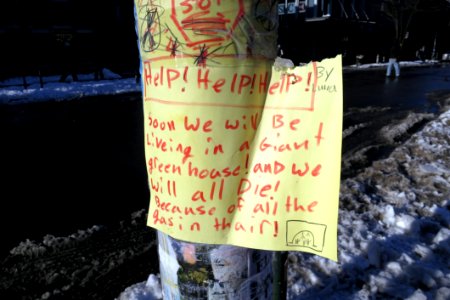 Help! Help! Help!
By
Soon We will Be
Liveing in a Giant
greenhouse! and We
will all Die!
Because of all the
gas in thair!